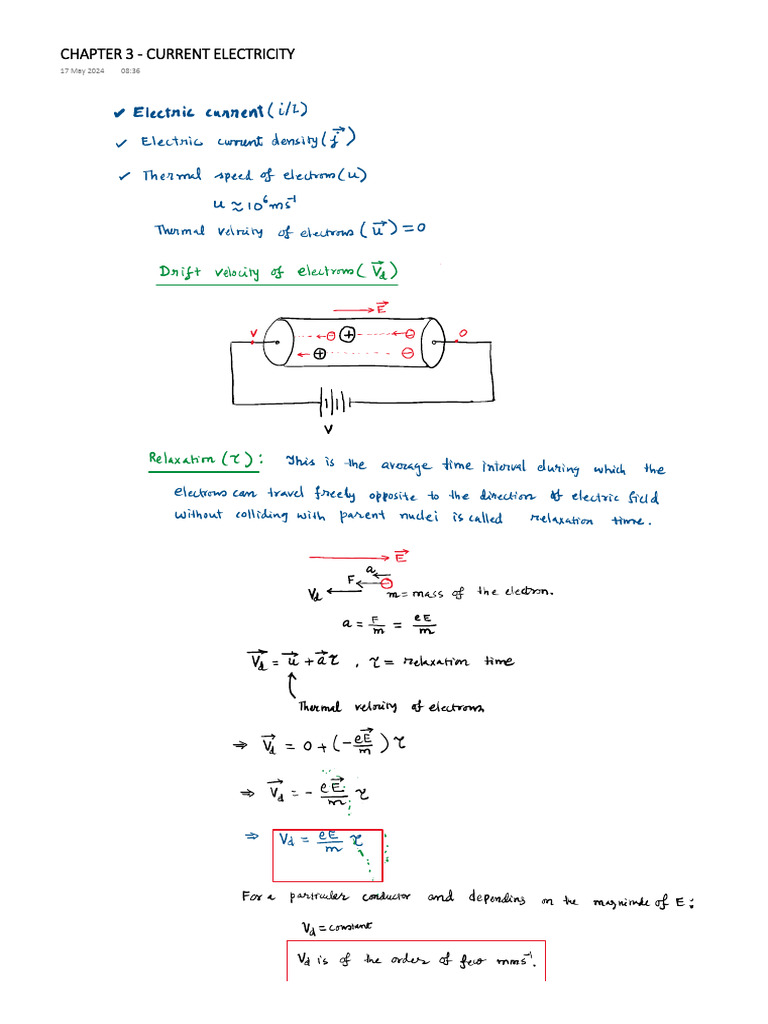 CHAPTER 3 - CURRENT ELECTRICITY
17 May 2024 08:36
✔ Electric current (i/I)
✓ Electric current density (j⃗)
✓ Thermal speed of electrons (u)
u ≈ 10⁶ ms⁻¹
Thermal velocity of electrons (u⃗) = 0
Drift velocity of electrons (V⃗d)
E⃗
V ⊖ ⊕ ⊖ 0
⊕ ⊖
V
Relaxation (τ) : This is the average time interval during which the
electrons can travel freely opposite to the direction of electric field
without colliding with parent nuclei is called relaxation time.
E⃗
a
F ⊖
Vd m = mass of the electron.
a = F/m = eE/m
V⃗d = u⃗ + a⃗τ , τ = relaxation time
Thermal velocity of electrons
⇒ V⃗d = 0 + (- eE⃗/m) τ
⇒ V⃗d = - eE⃗/m τ
⇒ Vd = eE/m τ
For a particular conductor and depending on the magnitude of E :
Vd = constant
Vd is of the orders of few mms⁻¹.